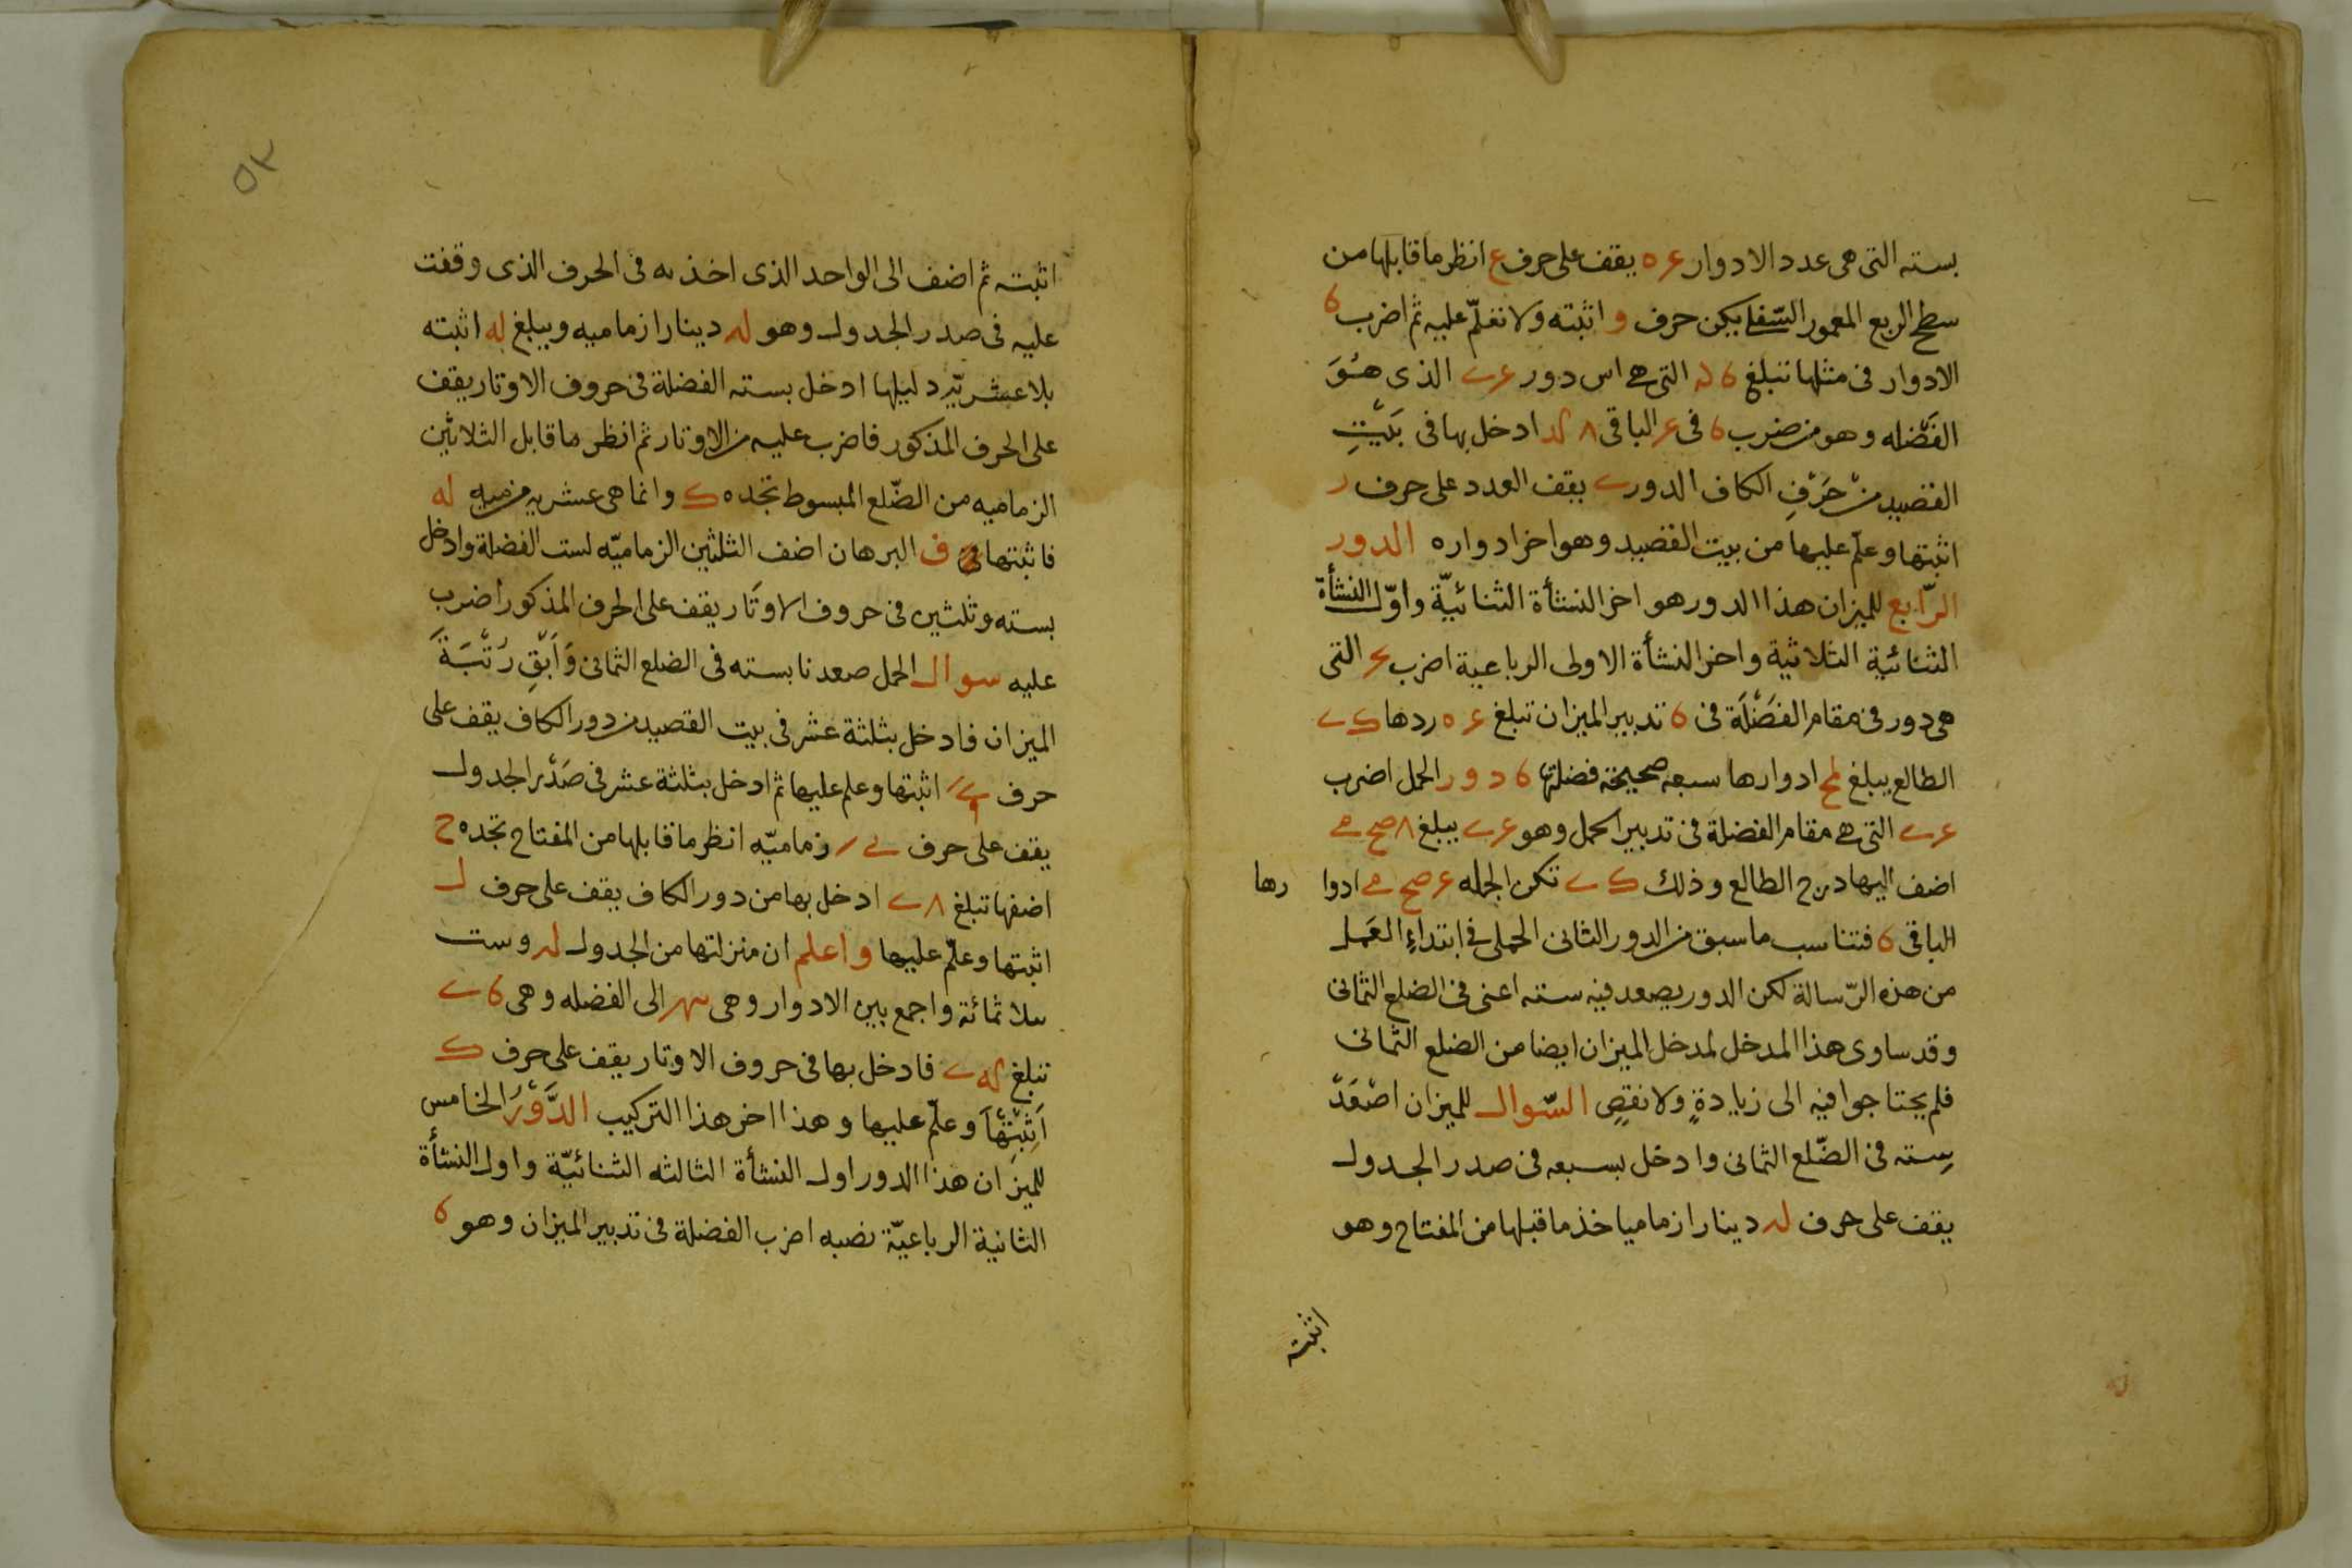 بسته التى هى عدد الادوار يقف على حرف ع انظر ما قابلها من
سطح الربع المعمور السفلا يكن حرف و اثبته ولا تعلّم عليه ثم اضرب ٦
الادوار فى مثلها تبلغ التى هى اس دور الذى هُوَ
الفَضْله وهو من ضرب ٦ فى الباقى ٨ ادخل بها فى بَيْتِ
القصيد منْ حَرْفِ الكاف الدور يقف العدد على حرف ر
اثبتها وعلّم عليها من بيت القصيد وهو اخر ادواره الدور
الرّابع للميزان هذا الدور هو اخر النشأة الثنائيّة واوّل النشأة
الثنائية الثلاثية واخر النشأة الاولى الرباعية اضرب التى
هى دور فى مقام الفَضْلَة فى ٦ تدبير الميزان تبلغ ردها
الطالع يبلغ لح ادوارها سبعه صحيحة فضلتها ٦ دور الحمل اضرب
التى هى مقام الفضلة فى تدبير الحمل وهو يبلغ
اضف اليها درج الطالع وذلك تكن الجمله ادوا رها
الباقى ٦ فتناسب ما سبق من الدور الثانى الحملى فى ابتداءِ العَمل
من هذه الرّسالة لكن الدور يصعد فيه سته اعنى فى الضلع الثمانى
وقد ساوى هذا المدخل لمدخل الميزان ايضا من الضلع الثمانى
فلم يحتاجوا فيه الى زيادةٍ ولا نقصٍ السّوال للميزان اصْعَدْ
سِته فى الضّلع الثمانى وادخل بسبعه فى صدر الجدول
يقف على حرف له دينارا زماميا خذ ما قبلها من المفتاح وهو
اثبته
٥٢
اثبته ثم اضف الى الواحد الذى اخذ به فى الحرف الذى وقفت
عليه فى صدر الجدول وهو له دينارا زماميه ويبلغ له اثبته
بلا عشريّه دليلها ادخل بسته الفضلة فى حروف الاوتار يقف
على الحرف المذكور فاضرب عليه من الاوتار ثم انظر ما قابل الثلاثين
الزماميه من الضّلع المبسوط تجده ك وانما هى عشريه له
فاثبتها ف البرهان اضف الثلثين الزماميّه لست الفضلة وادخل
بسته وثلثين فى حروف الاوتَار يقف على الحرف المذكور اضرب
عليه سوال الحمل صعدنا بسته فى الضلع الثمانى وَاَبْقِ رُتْبَةَ
الميزان فادخل بثلثة عشر فى بيت القصيد من دور الكاف يقف على
حرف اثبتها وعلم عليها ثم ادخل بثلثة عشر فى صَدْر الجدول
يقف على حرف زماميّه انظر ما قابلها من المفتاح تجده ح
اضفها تبلغ ادخل بها من دور الكاف يقف على حرف ل
اثبتها وعلّم عليها واعلم ان منزلتها من الجدول له وست
ثلاثمائة واجمع بين الادوار وهى الى الفضله وهى
تبلغ فادخل بها فى حروف الاوتار يقف على حرف ك
اَثْبِتْهَا وعلّم عليها وهذا اخر هذا التركيب الدَّوْرُ الخامس
للميزان هذا الدور اول النشأة الثالثه الثنائيّة واول النشأة
الثانية الرباعيّة اضرب الفضلة فى تدبير الميزان وهو ٦